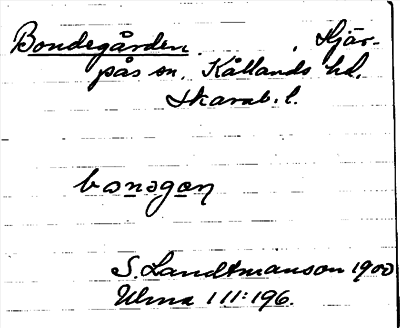 Bondegården. . Hjär-
pås sn. Kållands hd.
Skarab. l.
bonogon
S. Landtmanson 1900
Ulma 111:196.